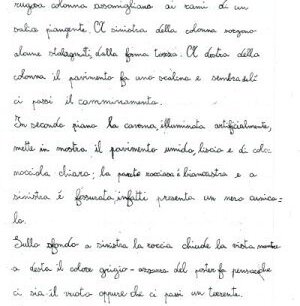 rugosa colonna assomigliano ai rami di un
salice piangente. A sinistra della colonna sorgono
alcune stalagmiti, dalla forma tozza. A destra della
colonna il pavimento fa uno scalino e sembra si li
ci passi il camminamento.
In secondo piano la caverna, illuminata artificialmente,
mette in mostra il pavimento umido, liscio e di colo-
nocciola chiaro; la parete rocciosa è biancastra e a
sinistra è fessurata, infatti presenta un nero cunico-
lo.
Sullo sfondo a sinistra la roccia chiude la vista mentre
a destra il colore grigio - del poster fa pensare che
ci sia il vuoto oppure che ci passi un torrente.